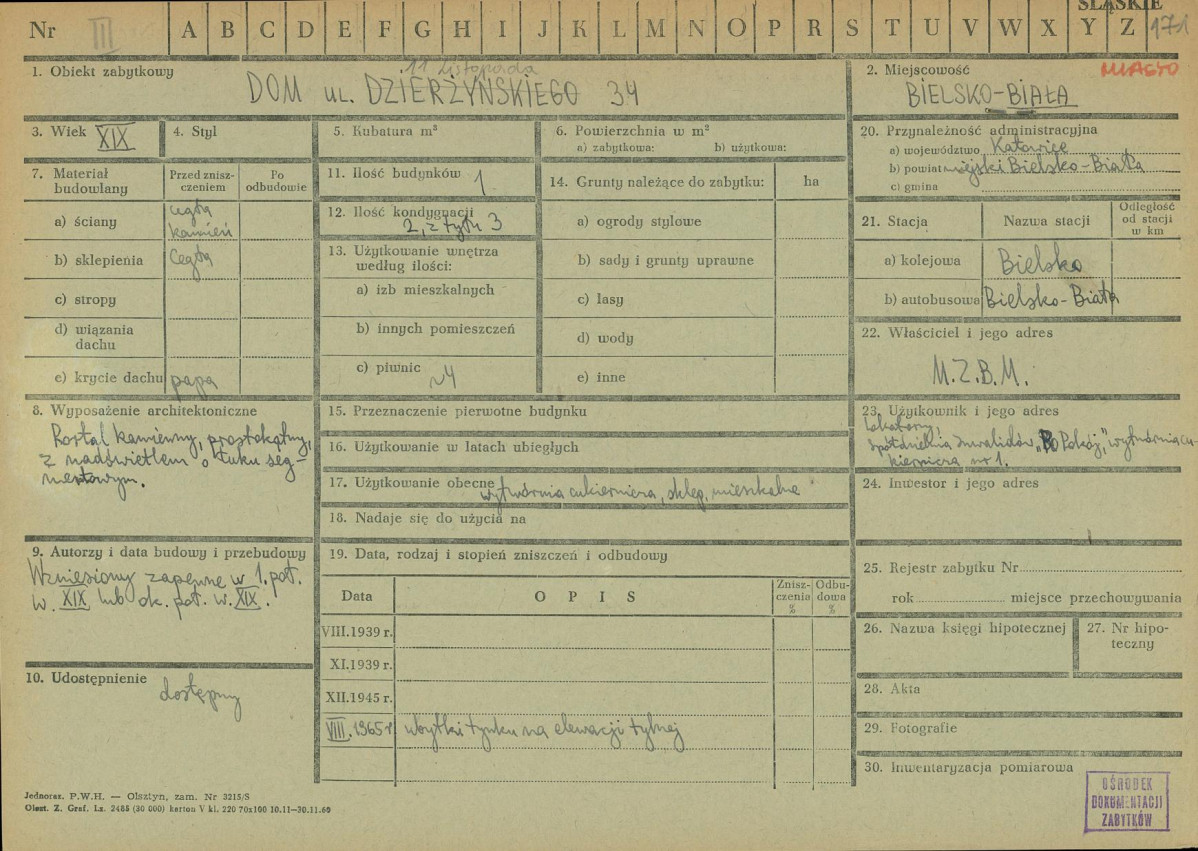 ŚLĄSKIE
Nr III A B C D E F G H I J K L M N O P R S T U V W X Y Z 171
1. Obiekt zabytkowy
11 Listopada
DOM ul. DZIERŻYŃSKIEGO 34
2. Miejscowość
MIASTO
BIELSKO-BIAŁA
3. Wiek XIX
4. Styl
5. Kubatura m³
6. Powierzchnia w m²
a) zabytkowa: b) użytkowa:
20. Przynależność administracyjna
a) województwo Katowice
b) powiat miejski Bielsko-Biała
c) gmina
7. Materiał budowlany
Przed znisz-
czeniem
Po
odbudowie
a) ściany cegła
kamień
b) sklepienia cegła
c) stropy
d) wiązania
dachu
e) krycie dachu papa
11. Ilość budynków 1
12. Ilość kondygnacji
2, z tyłu 3
13. Użytkowanie wnętrza
według ilości:
a) izb mieszkalnych
b) innych pomieszczeń
c) piwnic
~4
14. Grunty należące do zabytku: ha
a) ogrody stylowe
b) sady i grunty uprawne
c) lasy
d) wody
e) inne
21. Stacja Nazwa stacji
Odległość
od stacji
w km
a) kolejowa Bielsko
b) autobusowa Bielsko-Biała
22. Właściciel i jego adres
M.Z.B.M.
8. Wyposażenie architektoniczne
Portal kamienny, prostokątny,
z nadświetlem o łuku seg-
mentowym.
15. Przeznaczenie pierwotne budynku
16. Użytkowanie w latach ubiegłych
17. Użytkowanie obecne
wytwórnia cukiernicza, sklep, mieszkalne
18. Nadaje się do użycia na
23. Użytkownik i jego adres
lokatorzy,
Spółdzielnia Inwalidów "Pokój," wytwórnia cu-
kiernicza nr 1.
24. Inwestor i jego adres
9. Autorzy i data budowy i przebudowy
Wzniesiony zapewne w 1. poł.
w. XIX lub ok. poł. w. XIX.
19. Data, rodzaj i stopień zniszczeń i odbudowy
Data O P I S
Znisz-
czenia
%
Odbu-
dowa
%
VIII.1939 r.
XI.1939 r.
XII.1945 r.
VIII.1965 r ubytki tynku na elewacji tylnej
25. Rejestr zabytku Nr
rok miejsce przechowywania
26. Nazwa księgi hipotecznej
27. Nr hipo-
teczny
28. Akta
29. Fotografie
30. Inwentaryzacja pomiarowa
10. Udostępnienie
dostępny
Jednoraz. P.W.H. — Olsztyn, zam. Nr 3215/S
Olszt. Z. Graf. Lz. 2485 (30 000) karton V kl. 220 70x100 10.11—30.11.60
OŚRODEK
DOKUMENTACJI
ZABYTKÓW